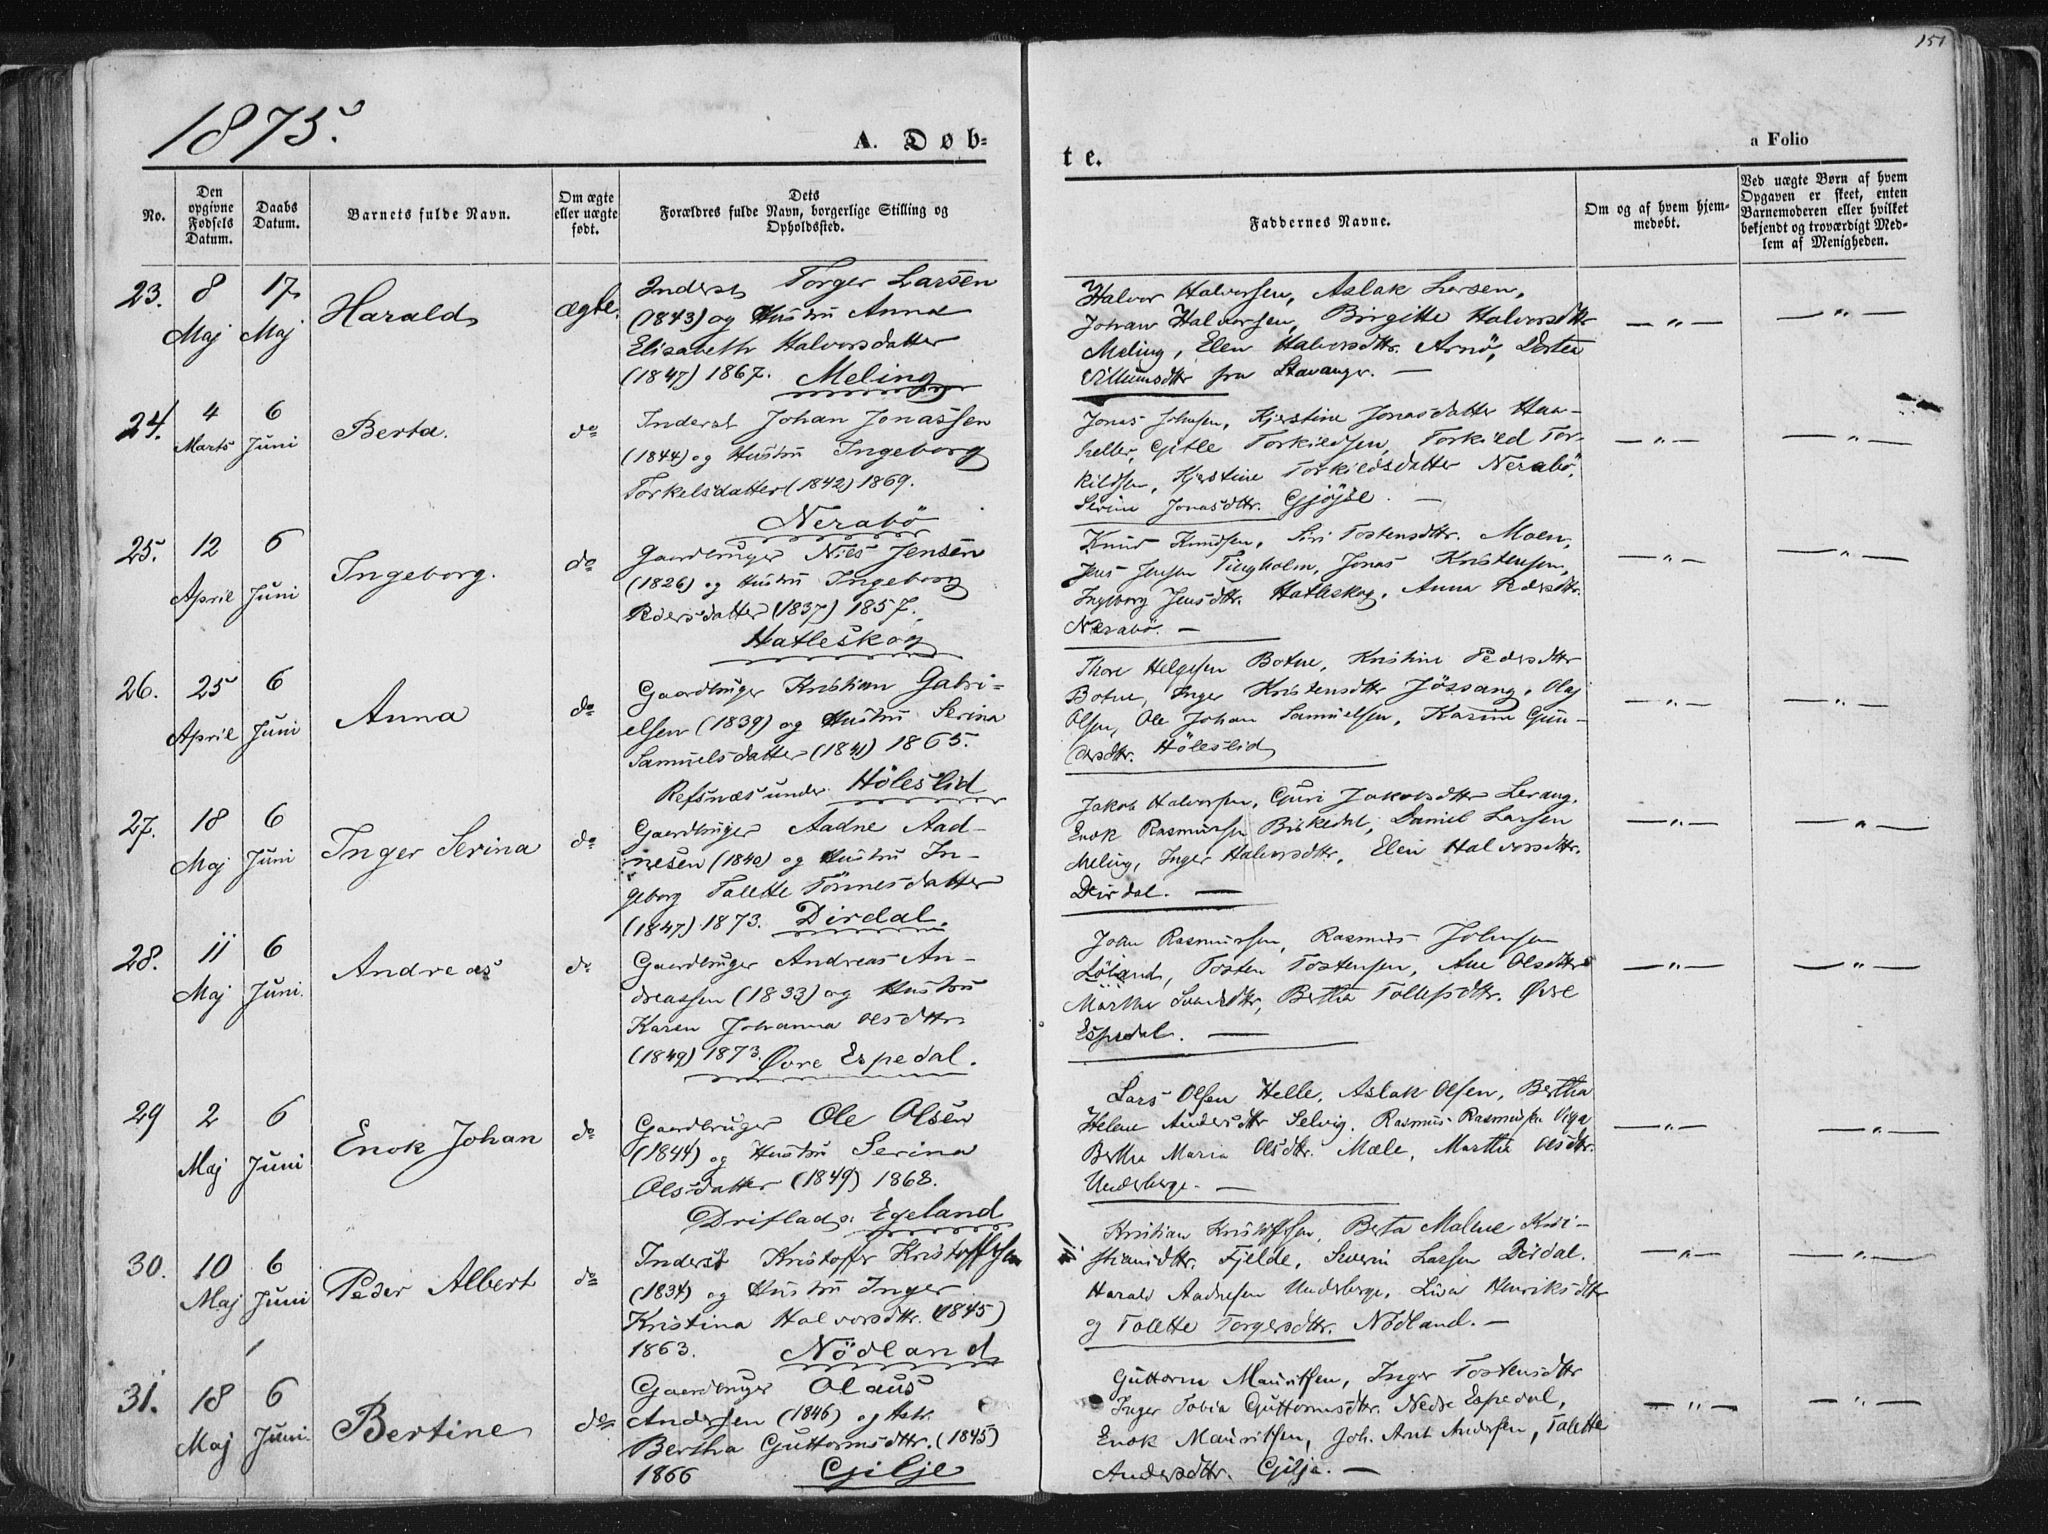 151
1875.
A. Døb-
te.
a Folio
No.
Den opgivne Fødsels Datum.
Daabs Datum.
Barnets fulde Navn.
Om ægte eller uægte født.
Dets Forældres fulde Navn, borgerlige Stilling og Opholdssted.
Faddernes Navne.
Om og af hvem hjemmedøbt.
Ved uægte Børn af hvem Opgaven er skeet, enten Barnemoderen eller hvilket bekjendt og troværdigt Medlem af Menigheden.
23. 8 Maj 17 Maj Harald ægte.
Inderst Torger Larsen
(1843) og Hustru Anna
Elisabeth Halvorsdatter
(1847) 1867. Meling
Halvor Halvorsen, Aslak Larsen,
Johan Halvorsen, Birgitte Halvorsdttr
Meling, Elen Halvorsdttr. Arnø, Dortea
Villumsdttr fra Stavanger. —
— " — — " —
24. 4 Marts 6 Juni Berta. do
Inderst Johan Jonassen
(1844) og Hustru Ingeborg
Torkelsdatter (1842) 1869.
Nerabö
Jonas Johnsen, Kjerstine Jonasdatter Haa-
heller, Gitle Torkildsen, Torkild Tor-
kildsen, Kjerstine Torkildsdatter Nerabö,
Serine Jonasdttr. Gjöjse. —
— " — — " —
25. 12 April 6 Juni Ingeborg. do
Gaardbruger Niels Jensen
(1826) og Hustru Ingeborg
Pedersdatter (1837) 1857.
Hatleskog
Knud Knudsen, Siri Tostensdttr. Moen,
Jens Jensen Tingholm, Jonas Kristensen,
Ingeborg Jensdttr. Hatleskog, Anna Pedersdttr.
Nerabö. —
— " — — " —
26. 25 April 6 Juni Anna do
Gaardbruger Kristian Gabri-
elsen (1839) og Hustru Serina
Samuelsdatter (1841) 1865.
Refsnæs under Höleslid
Thore Helgesen Botne, Kristine Pedersdttr
Botne, Inger Kristensdttr Jössang, Olaj
Olsen, Ole Johan Samuelsen, Karine Gun-
dersdttr. Höleslid
— " — — " —
27. 18 Maj 6 Juni Inger Serina do
Gaardbruger Aadne Aad-
nesen (1840) og Hustru In-
geborg Talette Tönnesdatter
(1847) 1873. Dirdal.
Jakob Halvorsen, Guri Jakobsdttr Lerang,
Enok Rasmussen Birkedal, Daniel Larsen
Meling, Inger Halvorsdttr, Elen Halvorsdttr.
Dirdal. —
— " — — " —
28. 11 Maj 6 Juni. Andreas do
Gaardbruger Andreas An-
dreassen (1833) og Hustru
Karen Johanna Olsdttr.
(1849) 1873. Øvre Espedal.
John Rasmussen, Rasmus Johnsen
Löland, Tosten Tostensen, Ane Olsdttr
Marthe Svendsdttr, Bertha Tollefsdttr. Øvre
Espedal. —
— " — — " —
29 2 Maj 6 Juni Enok Johan do
Gaardbruger Ole Olsen
(1844) og Hustru Serina
Olsdatter (1849) 1868.
Driflad p. Egeland
Lars Olsen Helle, Aslak Olsen, Bertha
Helene Andersdttr Selvig, Rasmus Rasmussen Viga
Berthe Maria Olsdttr. Mæle, Marthe Olsdttr.
Underberge. —
— " — — " —
30. 10 Maj 6 Juni Peder Albert do
Inderst Kristoffer Kristoffersen
(1834) og Hustru Inger
Kristina Halvorsdttr. (1845)
1863. Nödland
Kristian Kristoffersen, Berta Malene Kri-
stiansdttr. Fjelde, Severin Larsen Dirdal.
Harald Aadnesen Underberge, Lisa Henriksdttr
og Talette Torgersdttr. Nödland. —
— " — — " —
31. 18 Maj 6 Juni. Bertine do
Gaardbruger Olaus
Andersen (1846) og Hstr.
Bertha Guttormsdttr. (1845)
1866 Gilje
Guttorm Mauritsen, Inger Tostensdttr
Inger Tobia Guttormsdttr. Nedre Espedal,
Enok Mauritsen, Joh. Arnt Andersen, Talette
Andersdttr. Gilje. —
— " — — " —